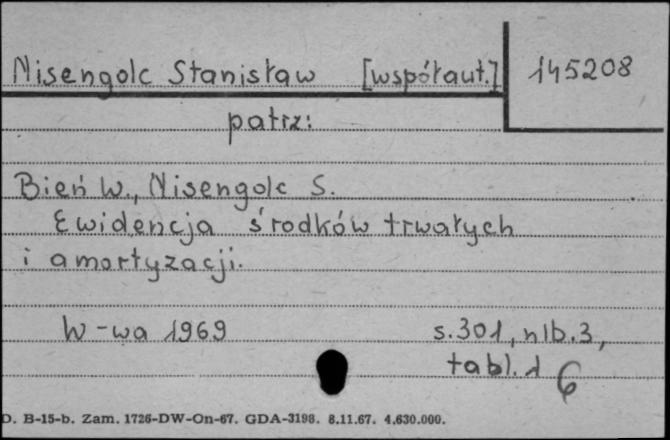 Nisengolc Stanisław [współaut.] 145208
patrz:
Bień W., Nisengolc S.
Ewidencja środków trwałych
i amortyzacji.
W-wa 1969 s.301, nlb.3,
tabl.1 6
D. B-15-b. Zam. 1726-DW-On-67. GDA-3198. 8.11.67. 4.630.000.